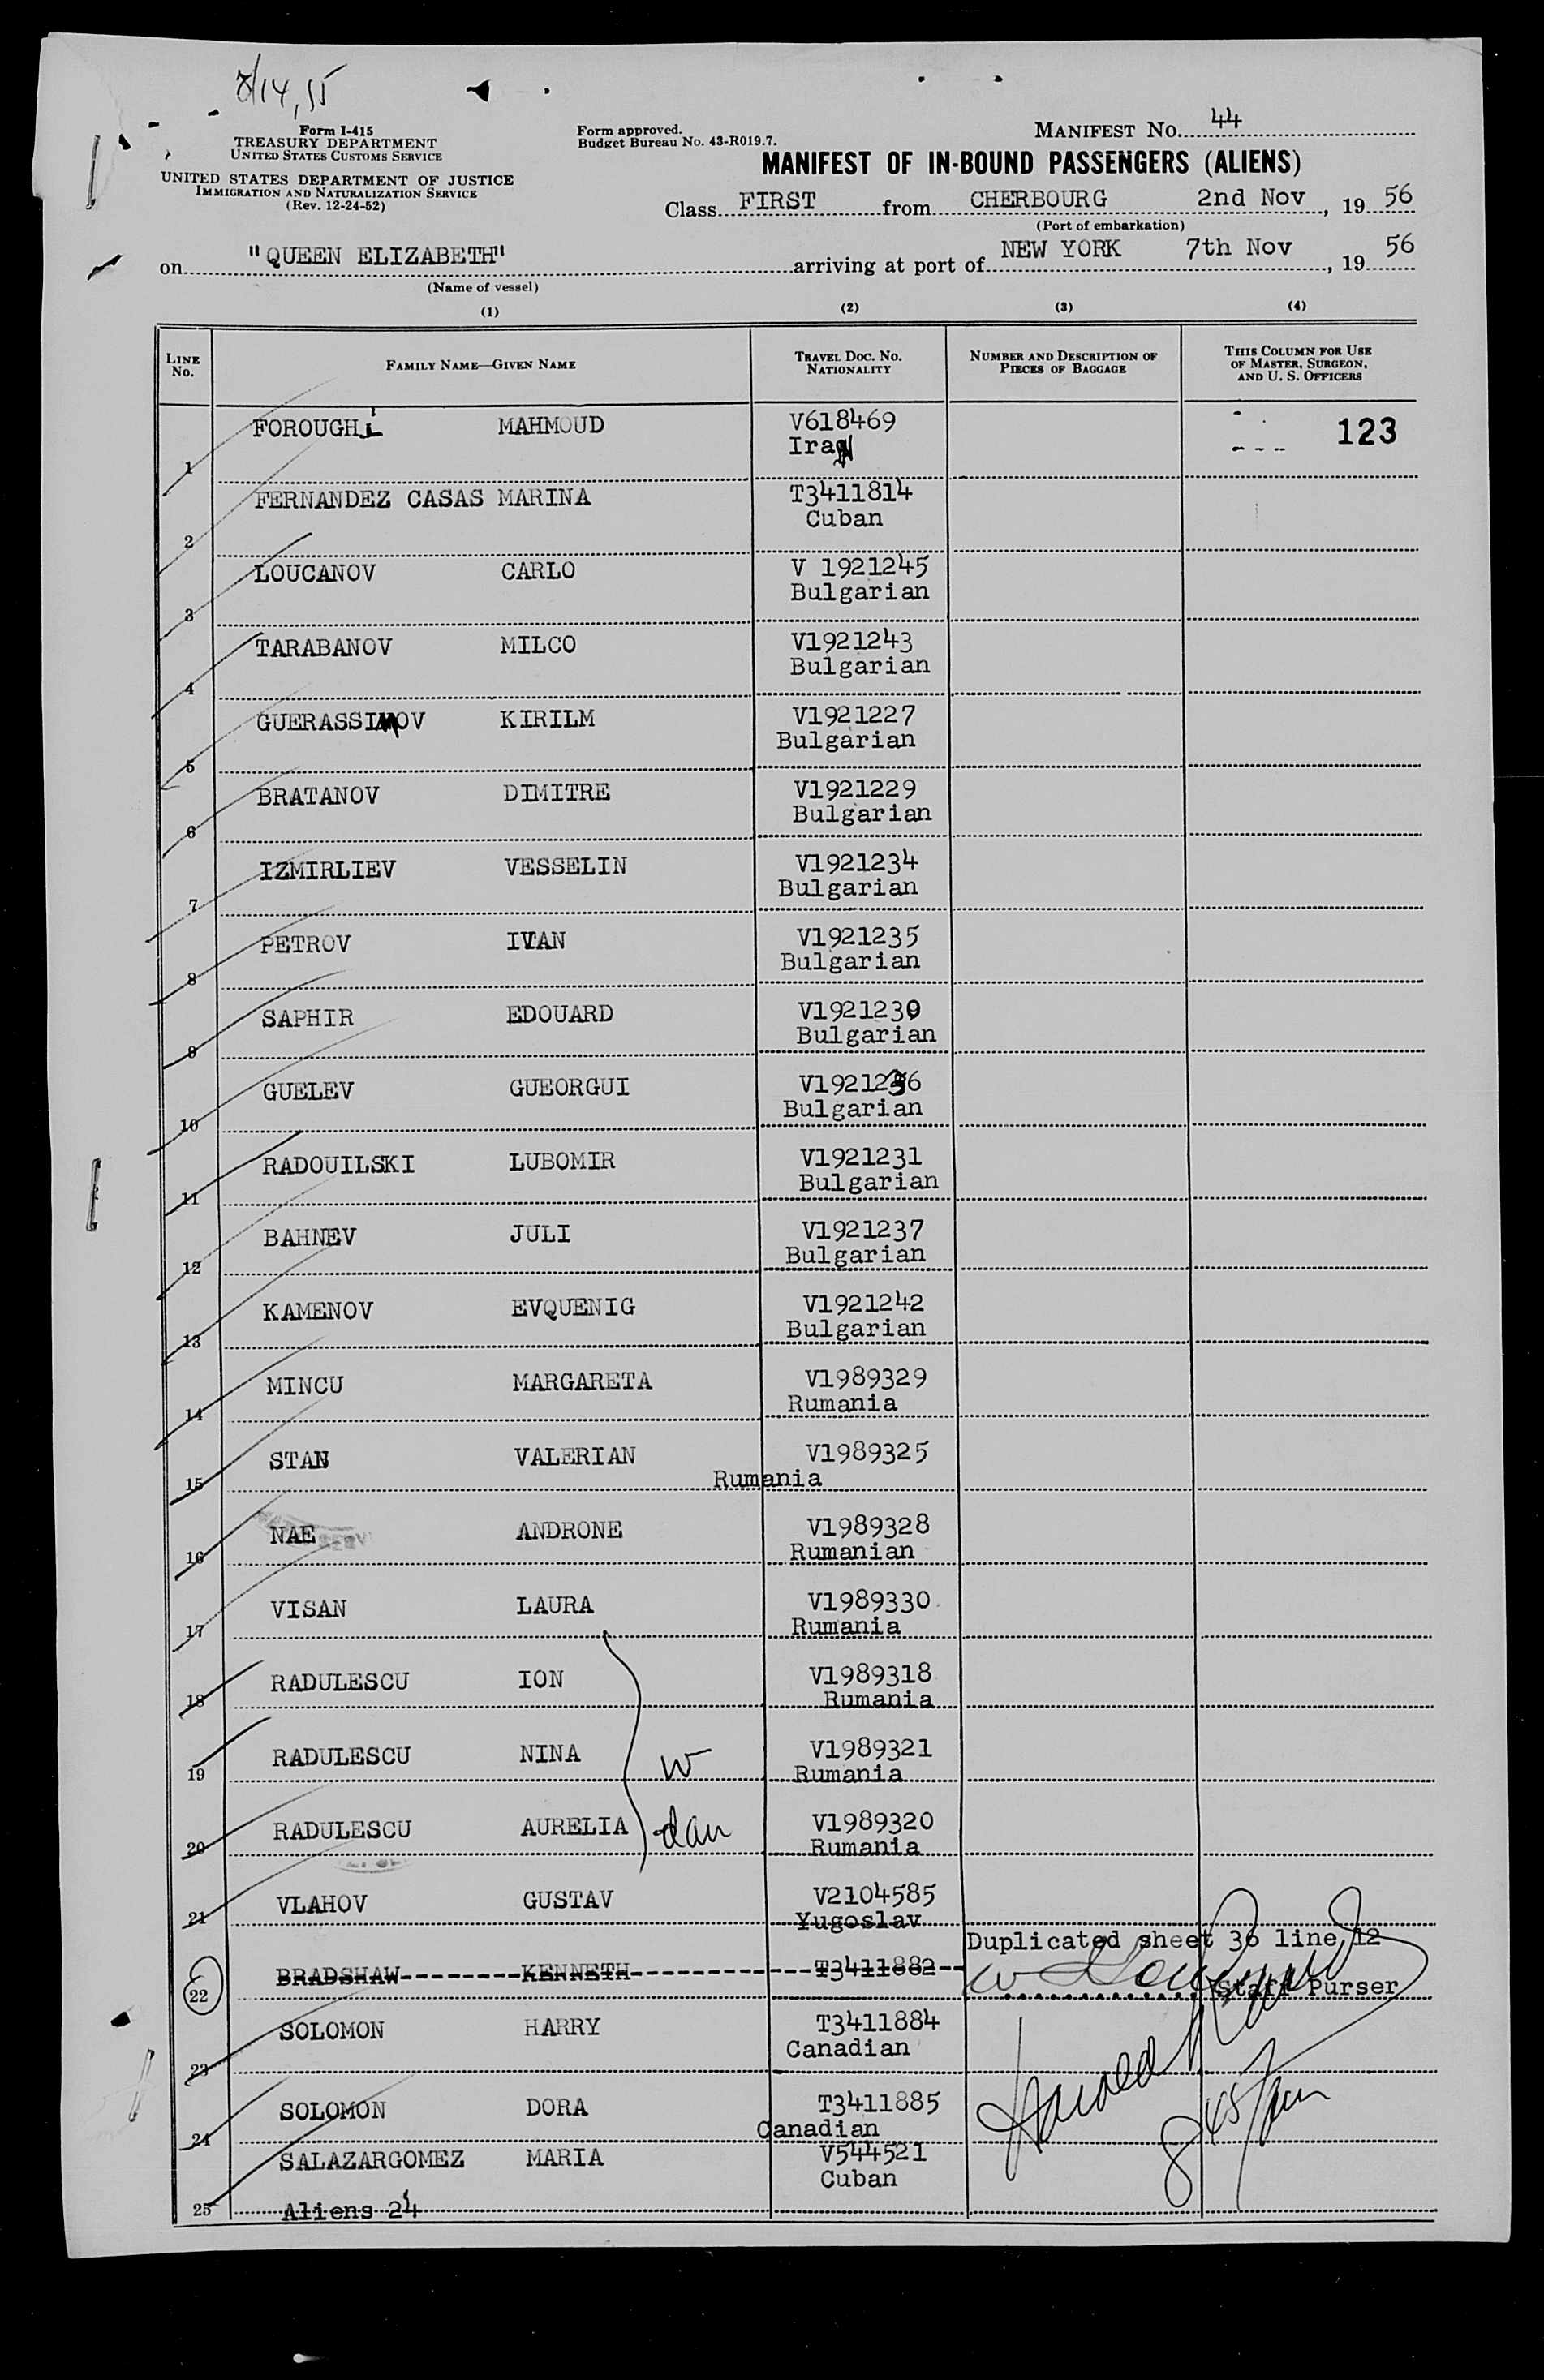 8/14,55
Form I-415
TREASURY DEPARTMENT
UNITED STATES CUSTOMS SERVICE
UNITED STATES DEPARTMENT OF JUSTICE
IMMIGRATION AND NATURALIZATION SERVICE
(Rev. 12-24-52)
Form approved.
Budget Bureau No. 43-R019.7.
MANIFEST No. 44
MANIFEST OF IN-BOUND PASSENGERS (ALIENS)
Class FIRST from CHERBOURG 2nd Nov, 19 56
(Port of embarkation)
on "QUEEN ELIZABETH" arriving at port of NEW YORK 7th Nov, 19 56
(Name of vessel)
(1) (2) (3) (4)
LINE No. FAMILY NAME—GIVEN NAME TRAVEL DOC. No. NATIONALITY NUMBER AND DESCRIPTION OF PIECES OF BAGGAGE THIS COLUMN FOR USE OF MASTER, SURGEON, AND U. S. OFFICERS
1 FOROUGHi MAHMOUD V618469 123
IraN
2 FERNANDEZ CASAS MARINA T3411814
Cuban
3 LOUCANOV CARLO V 1921245
Bulgarian
4 TARABANOV MILCO V1921243
Bulgarian
5 GUERASSIMOV KIRILM V1921227
Bulgarian
6 BRATANOV DIMITRE V1921229
Bulgarian
7 IZMIRLIEV VESSELIN V1921234
Bulgarian
8 PETROV IVAN V1921235
Bulgarian
9 SAPHIR EDOUARD V1921230
Bulgarian
10 GUELEV GUEORGUI V1921236
Bulgarian
11 RADOUILSKI LUBOMIR V1921231
Bulgarian
12 BAHNEV JULI V1921237
Bulgarian
13 KAMENOV EVQUENIG V1921242
Bulgarian
14 MINCU MARGARETA V1989329
Rumania
15 STAN VALERIAN V1989325
Rumania
16 NAE ANDRONE V1989328
Rumanian
17 VISAN LAURA V1989330
Rumania
18 RADULESCU ION V1989318
Rumania
19 RADULESCU NINA w V1989321
Rumania
20 RADULESCU AURELIA dau V1989320
Rumania
21 VLAHOV GUSTAV V2104585
Yugoslav
Duplicated sheet 36 line 12
22 BRADSHAW KENNETH T3411882
Staff Purser
23 SOLOMON HARRY T3411884
Canadian
24 SOLOMON DORA T3411885
Canadian
25 SALAZARGOMEZ MARIA V544521
Cuban
Aliens 24
Harold
8 45/am